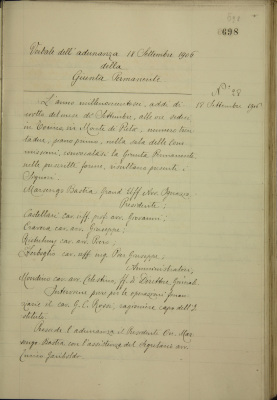 698
Verbale dell'adunanza 18 Settembre 1906
della
Giunta Permanente
N.° 28
18 Settembre 1906
L'anno millenovecentosei, addì di
ciotto del mese di Settembre, alle ore sedici
in Torino, via Monte di Pietà, numero tren
tadue, piano primo, nella sala delle Com
missioni, convocatasi la Giunta Permanente
nelle prescritte forme, risultano presenti i
Signori:
Marsengo Bastia Grand. Uff. Avv. Ignazio,
Presidente;
Castellari cav. uff. prof. avv. Giovanni;
Craveria cav. avv. Giuseppe;
cav. avv. Pier
cav. uff. ing. Pier Giuseppe;
Amministratori,
cav. avv. Celestino, ff. di Direttore Generale
Interviene pure per le operazioni finan
ziarie il cav. G. C. Rossi, ragioniere capo dell'I
stituto.
Presiede l'adunanza il Presidente On. Mar
sengo Bastia con l'assistenza del Segretario avv.
Garibaldo.